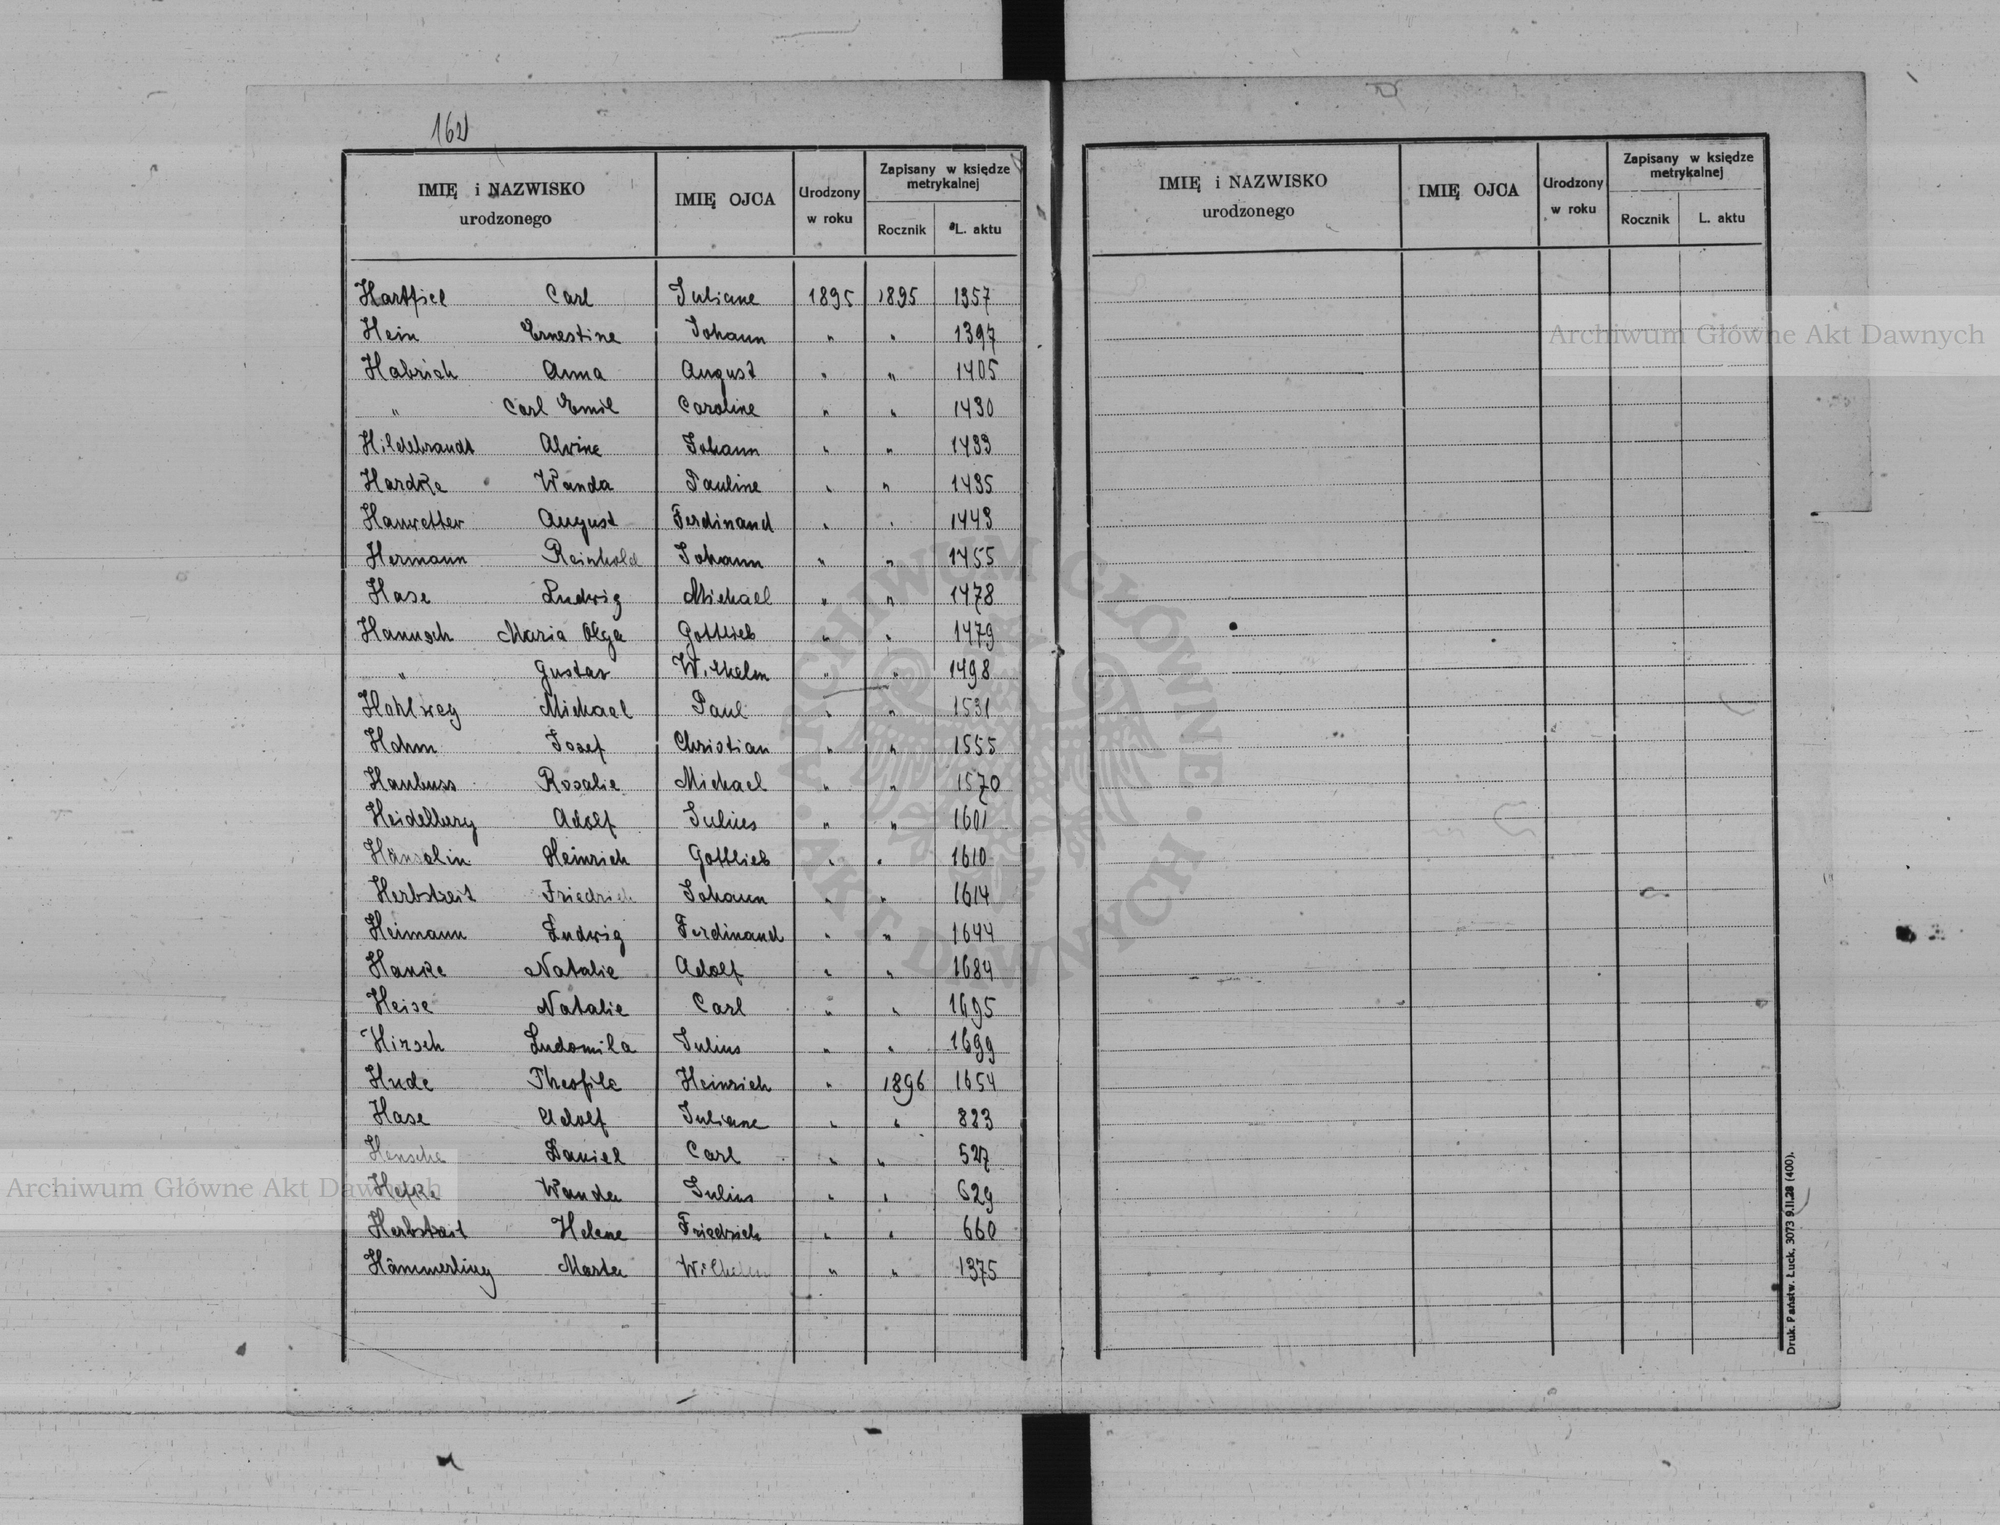 162
IMIĘ i NAZWISKO urodzonego IMIĘ OJCA Urodzony w roku Zapisany w księdze metrykalnej Rocznik L. aktu
Hartfiel Carl Juliane 1895 1895 1357
Hein Ernestine Johann " " 1397
Habrich Anna August " " 1405
" Carl Emil Caroline " " 1430
Hildebrandt Alvine Johann " " 1433
Hardke Wanda Pauline " " 1435
Hauvetter August Ferdinand " " 1443
Hermann Reinhold Johann " " 1455
Hase Ludwig Michael " " 1478
Hanusch Maria Olga Gottlieb " " 1479
" Gustav Wilhelm " " 1498
Hohlweg Michael Paul " " 1531
Hohm Josef Christian " " 1555
Haubuss Rosalie Michael " " 1570
Heidelberg Adolf Julius " " 1601
Hänselin Heinrich Gottlieb " " 1610
Herbstzeit Friedrich Johann " " 1614
Heimann Ludwig Ferdinand " " 1644
Hanke Natalie Adolf " " 1684
Heise Natalie Carl " " 1695
Hirsch Ludomila Julius " " 1699
Hude Theofile Heinrich " 1896 1654
Hase Adolf Juliane " " 823
Hensche Daniel Carl " " 527
Hefke Wanda Julius " " 629
Herbstzeit Helene Friedrich " " 660
Hämmerling Marta Wilhelm " " 1375
IMIĘ i NAZWISKO urodzonego IMIĘ OJCA Urodzony w roku Zapisany w księdze metrykalnej Rocznik L. aktu
Druk. Państw. Łuck. 3073 9.II.28 (400).
Archiwum Główne Akt Dawnych
Archiwum Główne Akt Dawnych
ARCHIWUM GŁÓWNE · AKT DAWNYCH ·